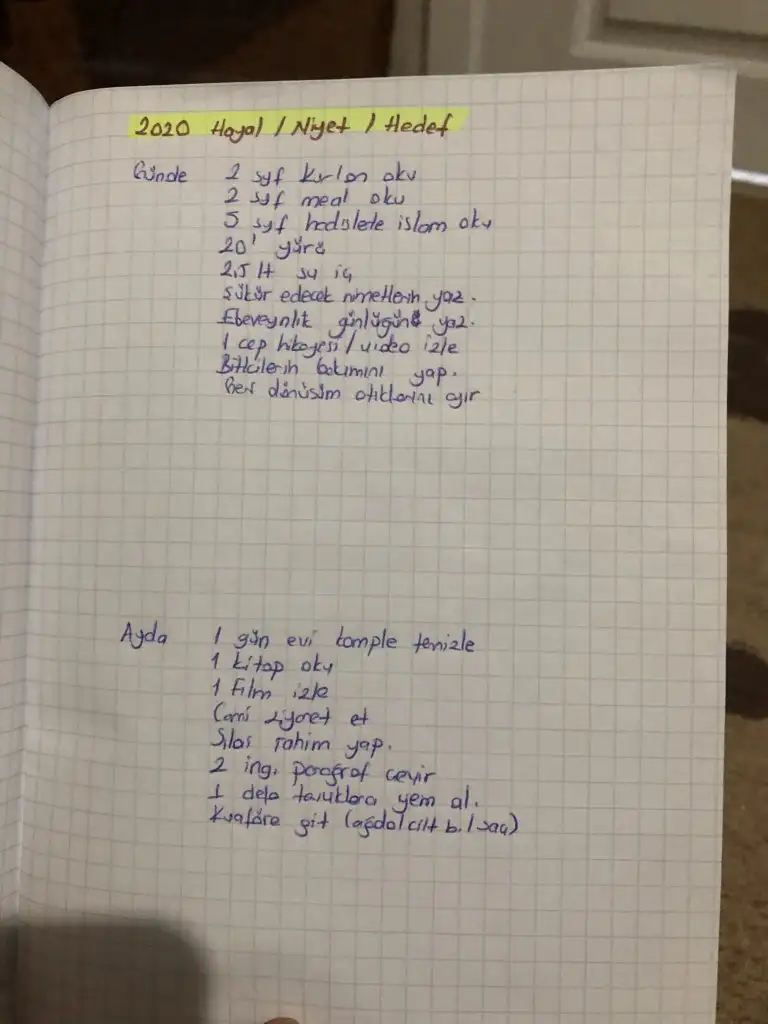 2020 Hayal / Niyet / Hedef
Günde 2 syf Kur'an oku
2 syf meal oku
5 syf hadislerle islam oku
20' yürü
2,5 lt su iç
Şükür edecek nimetlerin yaz.
Ebeveynlik günlüğünü yaz.
1 cep hikayesi / video izle
Bitkilerin bakımını yap.
Geri dönüşüm atıklarını ayır
Ayda 1 gün evi komple temizle
1 kitap oku
1 Film izle
Cami ziyaret et
Sılas rahim yap.
2 ing. paragraf çevir
1 defa tavuklara yem al.
Kuaföre git (ağda / cilt b. / saç)